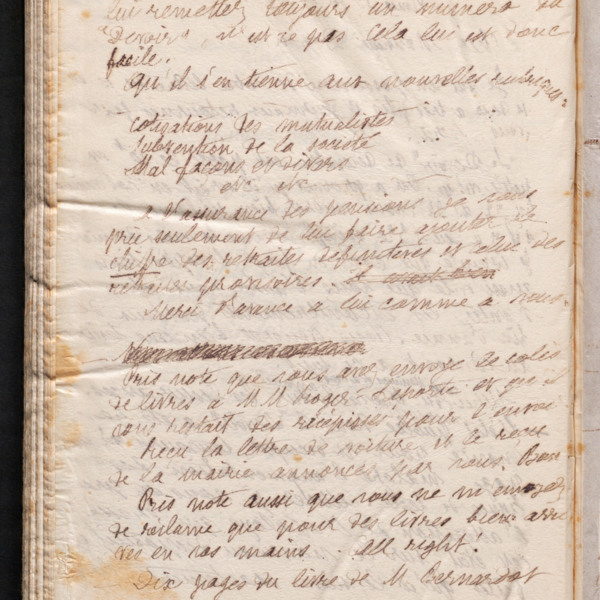 lui remettez toujours un numéro du
"Devoir", n'est-ce pas cela lui est donc
facile.
Qu'il s'en tienne aux nouvelles rubriques:
cotisations des mutualistes
subvention de la société
Mal façons et divers
etc etc
à l'assurance des pensions. Je vous
prie seulement de lui faire ajouter le
chiffre des retraites définitives et celui des
retraites provisoires. 
Merci d'avance à lui comme à vous.
Pris note que vous avez envoyé le colis
de livres à M M Roger Laporte et qu'il
vous restait des récépissés pour l'envoi
Reçu la lettre de voiture et le reçu
de la mairie annoncés par vous. Bon
Pris note aussi que vous ne m'envoyez
de réclame que pour des livres bien arri
vés en vos mains. All right!
Dix pages du livre de M Bernardot